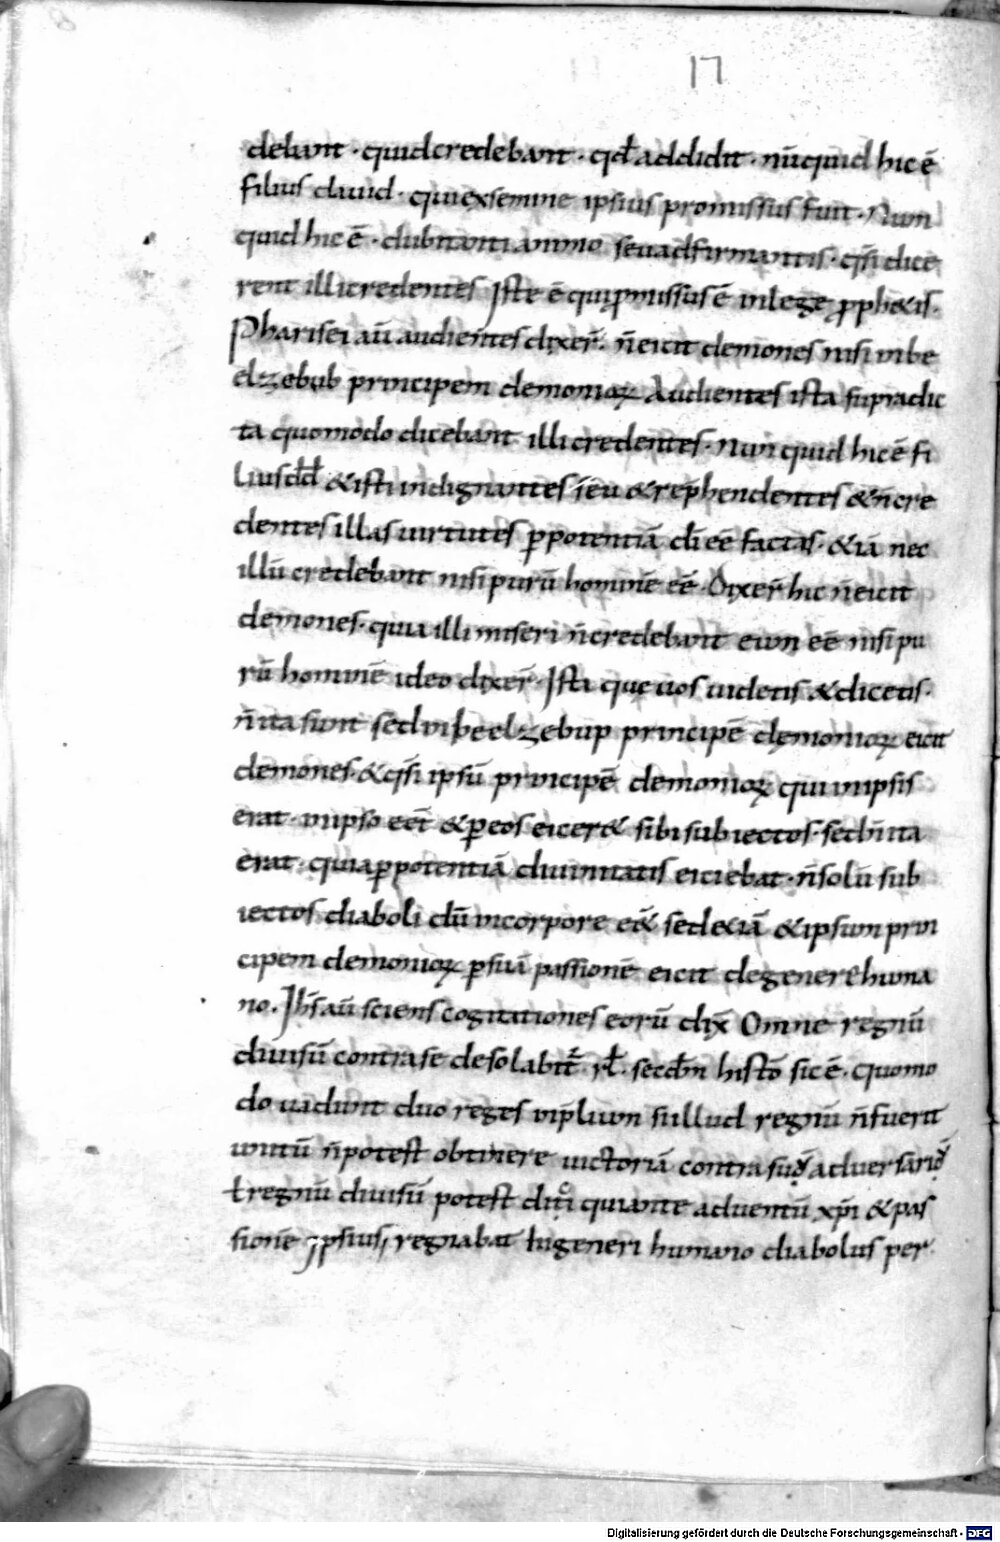 17
debant · quid credebant · qđ addidit · nūquid hic ē
filius dauid · qui ex semine ipsius promissus fuit · Nun
quid hic ē · dubitanti animo seu adfirmantis · qsi dice
rent illi credentes Iste ē qui pmissus ē in lege & pphetis.
Pharisei aū audientes dixer̄. n̄ eicit demones nisi in be
elzebub principem demonioꝝ Audientes ista supradic
ta quomodo dicebant illi credentes · Nun quid hic ē fi
lius dđ & isti indignantes seu & reprehendentes & n̄ cre
dentes illas uirtutes p potentiā di ēe factas · & iā nec
illū credebant nisi purū hominē ēe · Dixer̄ hic n̄ eicit
demones · quia illi miseri n̄ credebant eum ēe nisi pu
rū hominē ideo dixer̄ · Ista que uos uidetis & dicetis ·
n̄ ita sunt sed in beelzebup principē demonioꝝ eicit
demones · & qsi ipsū principē demonioꝝ qui in ipsis
erat · in ipso eēt & p eos eiceret sibi subiectos · sed n̄ ita
erat · quia p potentiā diuinitatis eiciebat · n̄ solū sub
iectos diaboli dū in corpore eēt sed etiā & ipsum prin
cipem demonioꝝ p suā passionē eicit de genere huma
no. Ihs aū sciens cogitationes eorū dix̄ Omne regnū
diuisū contra se desolabit̄ · rł. secđm histō sic ē · quomo
do uadunt duo reges in pliun si illud regnū n̄ fuerit
unitū n̄ potest obtinere uictoriā contra suū aduersariū
ł regnū diuisū potest dici quia ante aduentū xp̄i & pas
sionē ipsius regnabat huic generi humano diabolus per
Digitalisierung gefördert durch die Deutsche Forschungsgemeinschaft - DFG